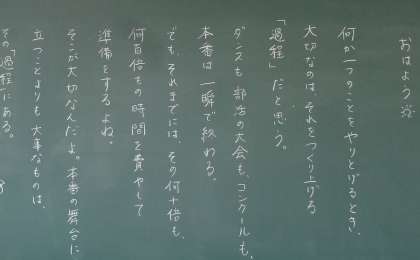 おはよう☆
何か一つのことをやりとげるとき、
大切なのは、それをつくり上げる
「過程」だと思う。
ダンスも部活の大会も、コンクールも、
本番は一瞬で終わる。
でも、それまでには、その何十倍も、
何百倍もの時間を費やして
準備をするよね。
そこが大切なんだよ。本番の舞台に
立つことよりも大事なものは、
その「過程」にある。